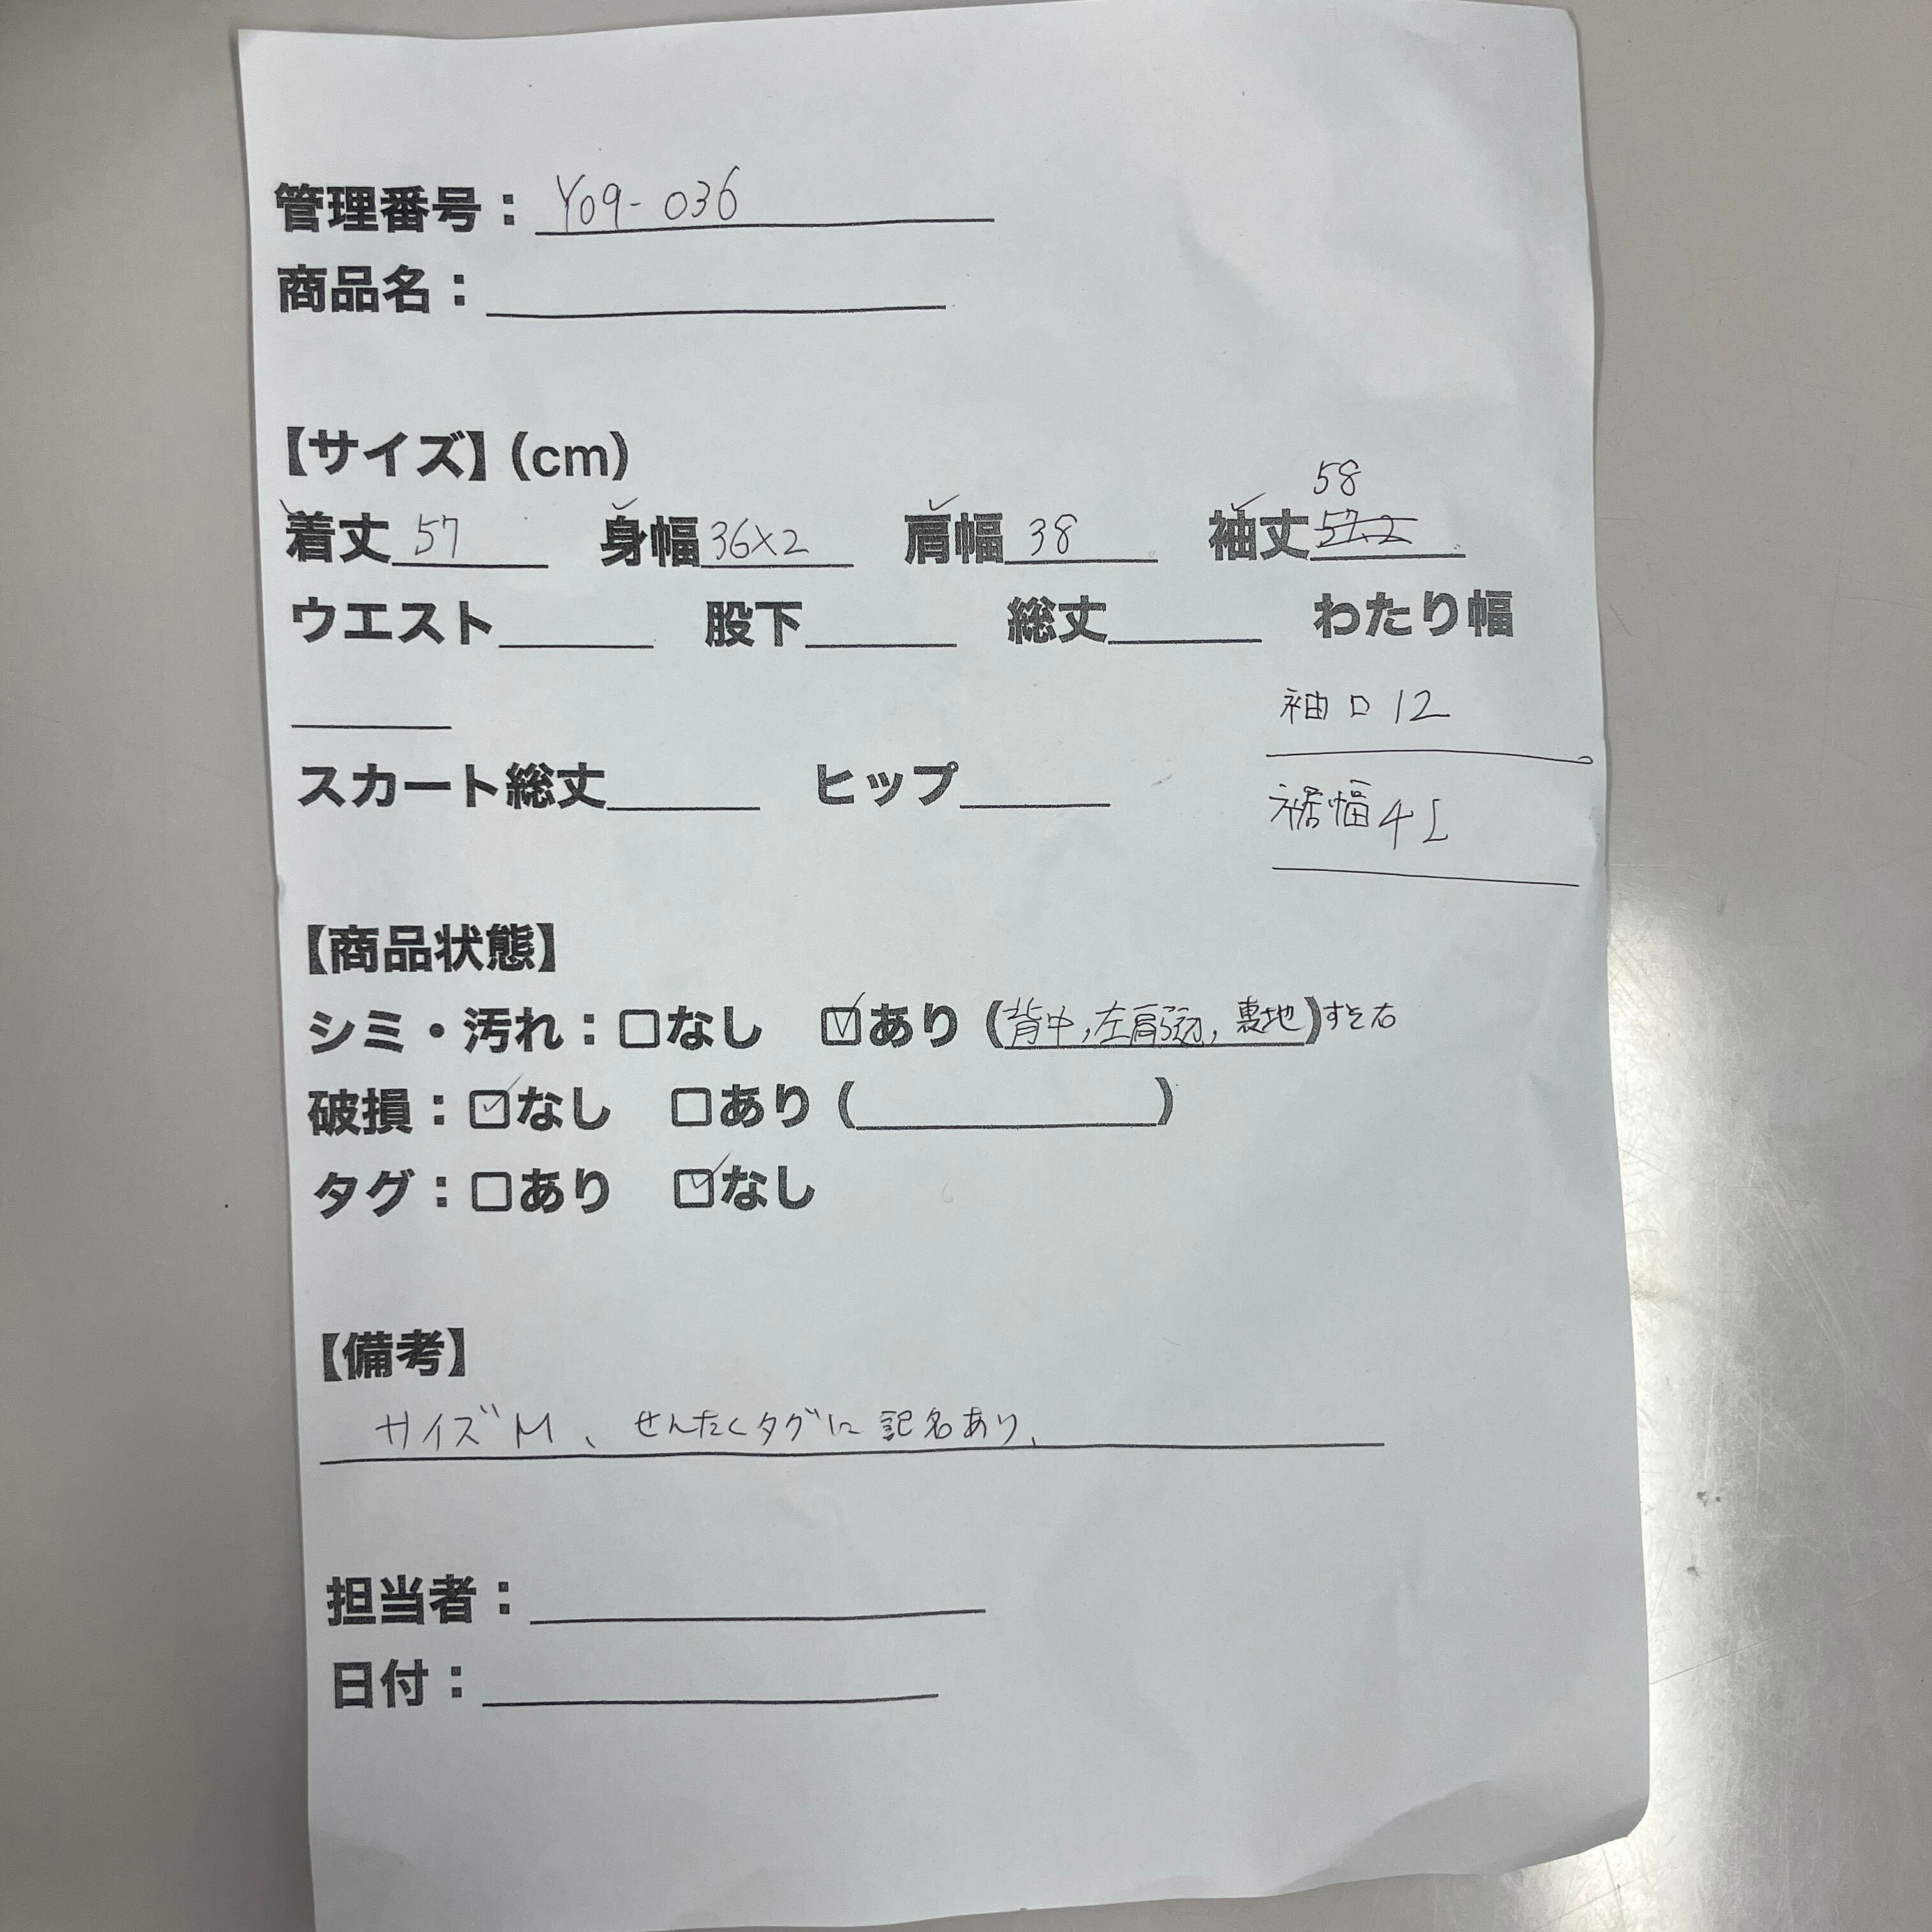 管理番号： Y09-036
商品名：
【サイズ】(cm)
58
着丈 57 身幅 36×2 肩幅 38 袖丈 57.2
ウエスト 股下 総丈 わたり幅
袖口 12
スカート総丈 ヒップ
裾幅 41
【商品状態】
シミ・汚れ：□なし ☑あり (背中,左肩, 裏地)すそ右
破損：☑なし □あり ( )
タグ：□あり ☑なし
【備考】
サイズM、せんたくタグに記名あり、
担当者：
日付：